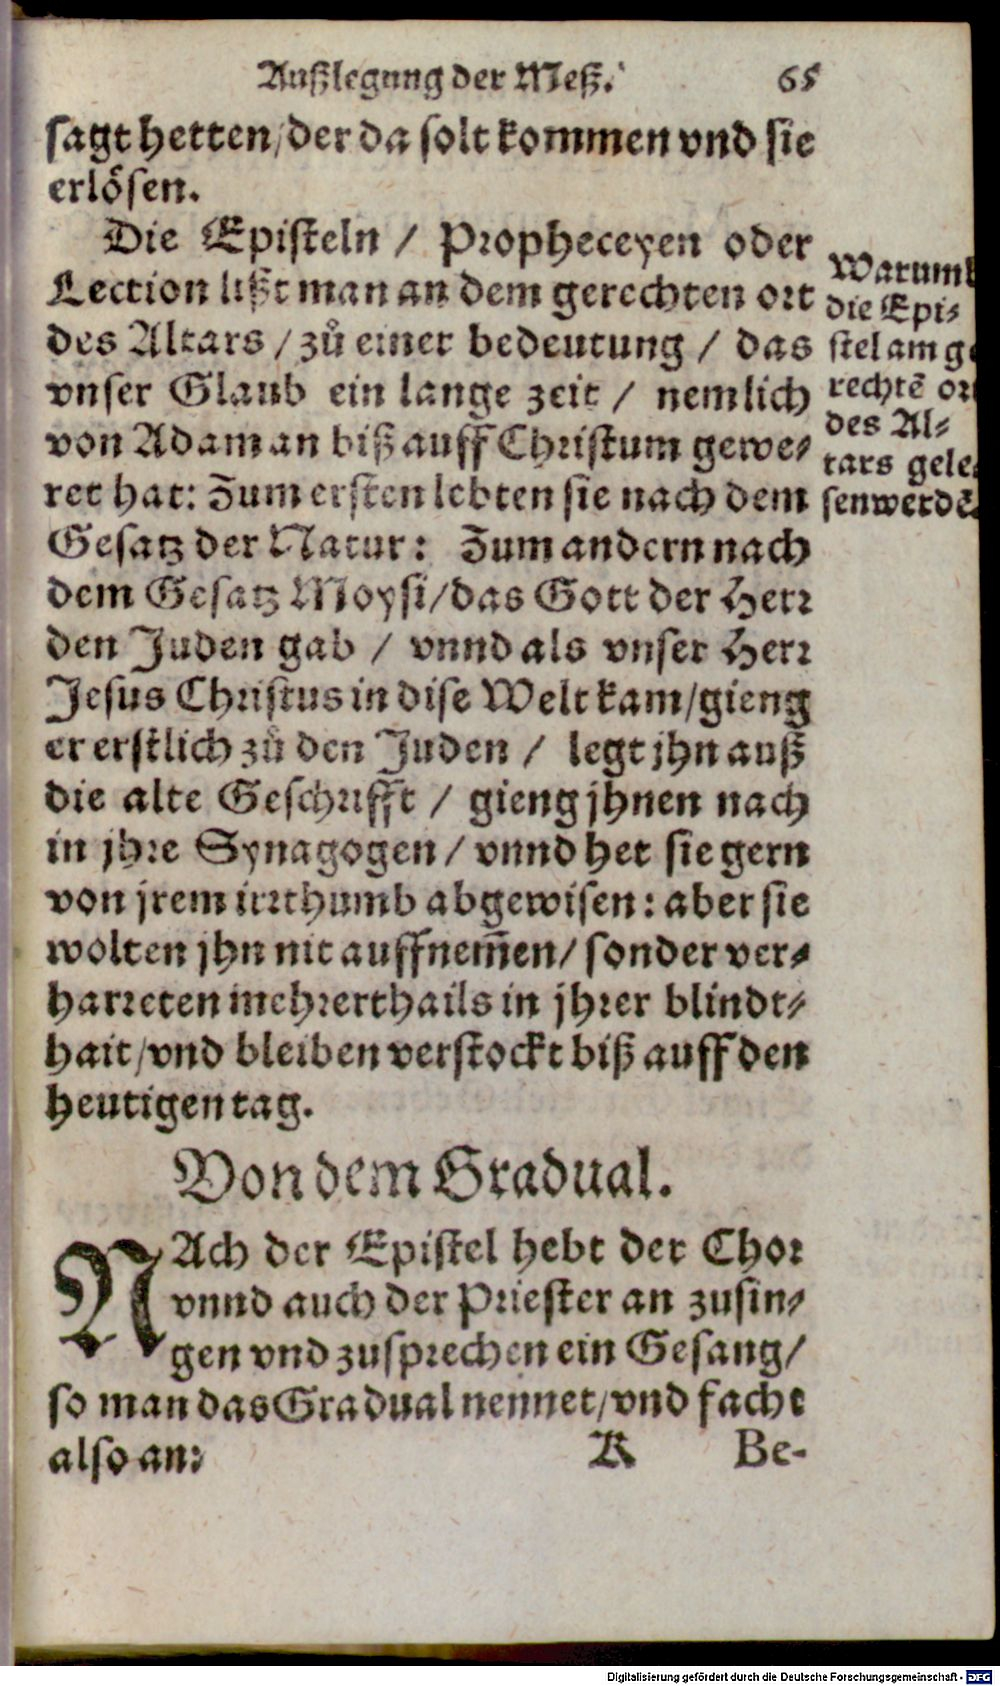 Außlegung der Meß. 65
sagt hetten/der da solt kommen vnd sie
erlösen.
Die Episteln / Propheceyen oder
Lection lißt man an dem gerechten ort
des Altars / zů einer bedeutung / das
vnser Glaub ein lange zeit / nemlich
von Adam an biß auff Christum gewe-
ret hat: Zum ersten lebten sie nach dem
Gesatz der Natur: Zum andern nach
dem Gesatz Moysi/das Gott der Herr
den Juden gab / vnnd als vnser Herr
Jesus Christus in dise Welt kam/gieng
er erstlich zů den Juden / legt jhn auß
die alte Geschrifft / gieng jhnen nach
in jhre Synagogen / vnnd het sie gern
von jrem irrthumb abgewisen: aber sie
wolten jhn nit auffnem̃en/ sonder ver-
harreten mehrerthails in jhrer blindt-
hait/vnd bleiben verstockt biß auff den
heutigen tag.
Warumb
die Epi-
stel am ge
rechtẽ ort
des Al-
tars gele-
sen werdẽ.
Von dem Gradual.
NAch der Epistel hebt der Chor
vnnd auch der Priester an zusin-
gen vnd zusprechen ein Gesang/
so man das Gradual nennet/vnd facht
also an:
K Be-
Digitalisierung gefördert durch die Deutsche Forschungsgemeinschaft - DFG